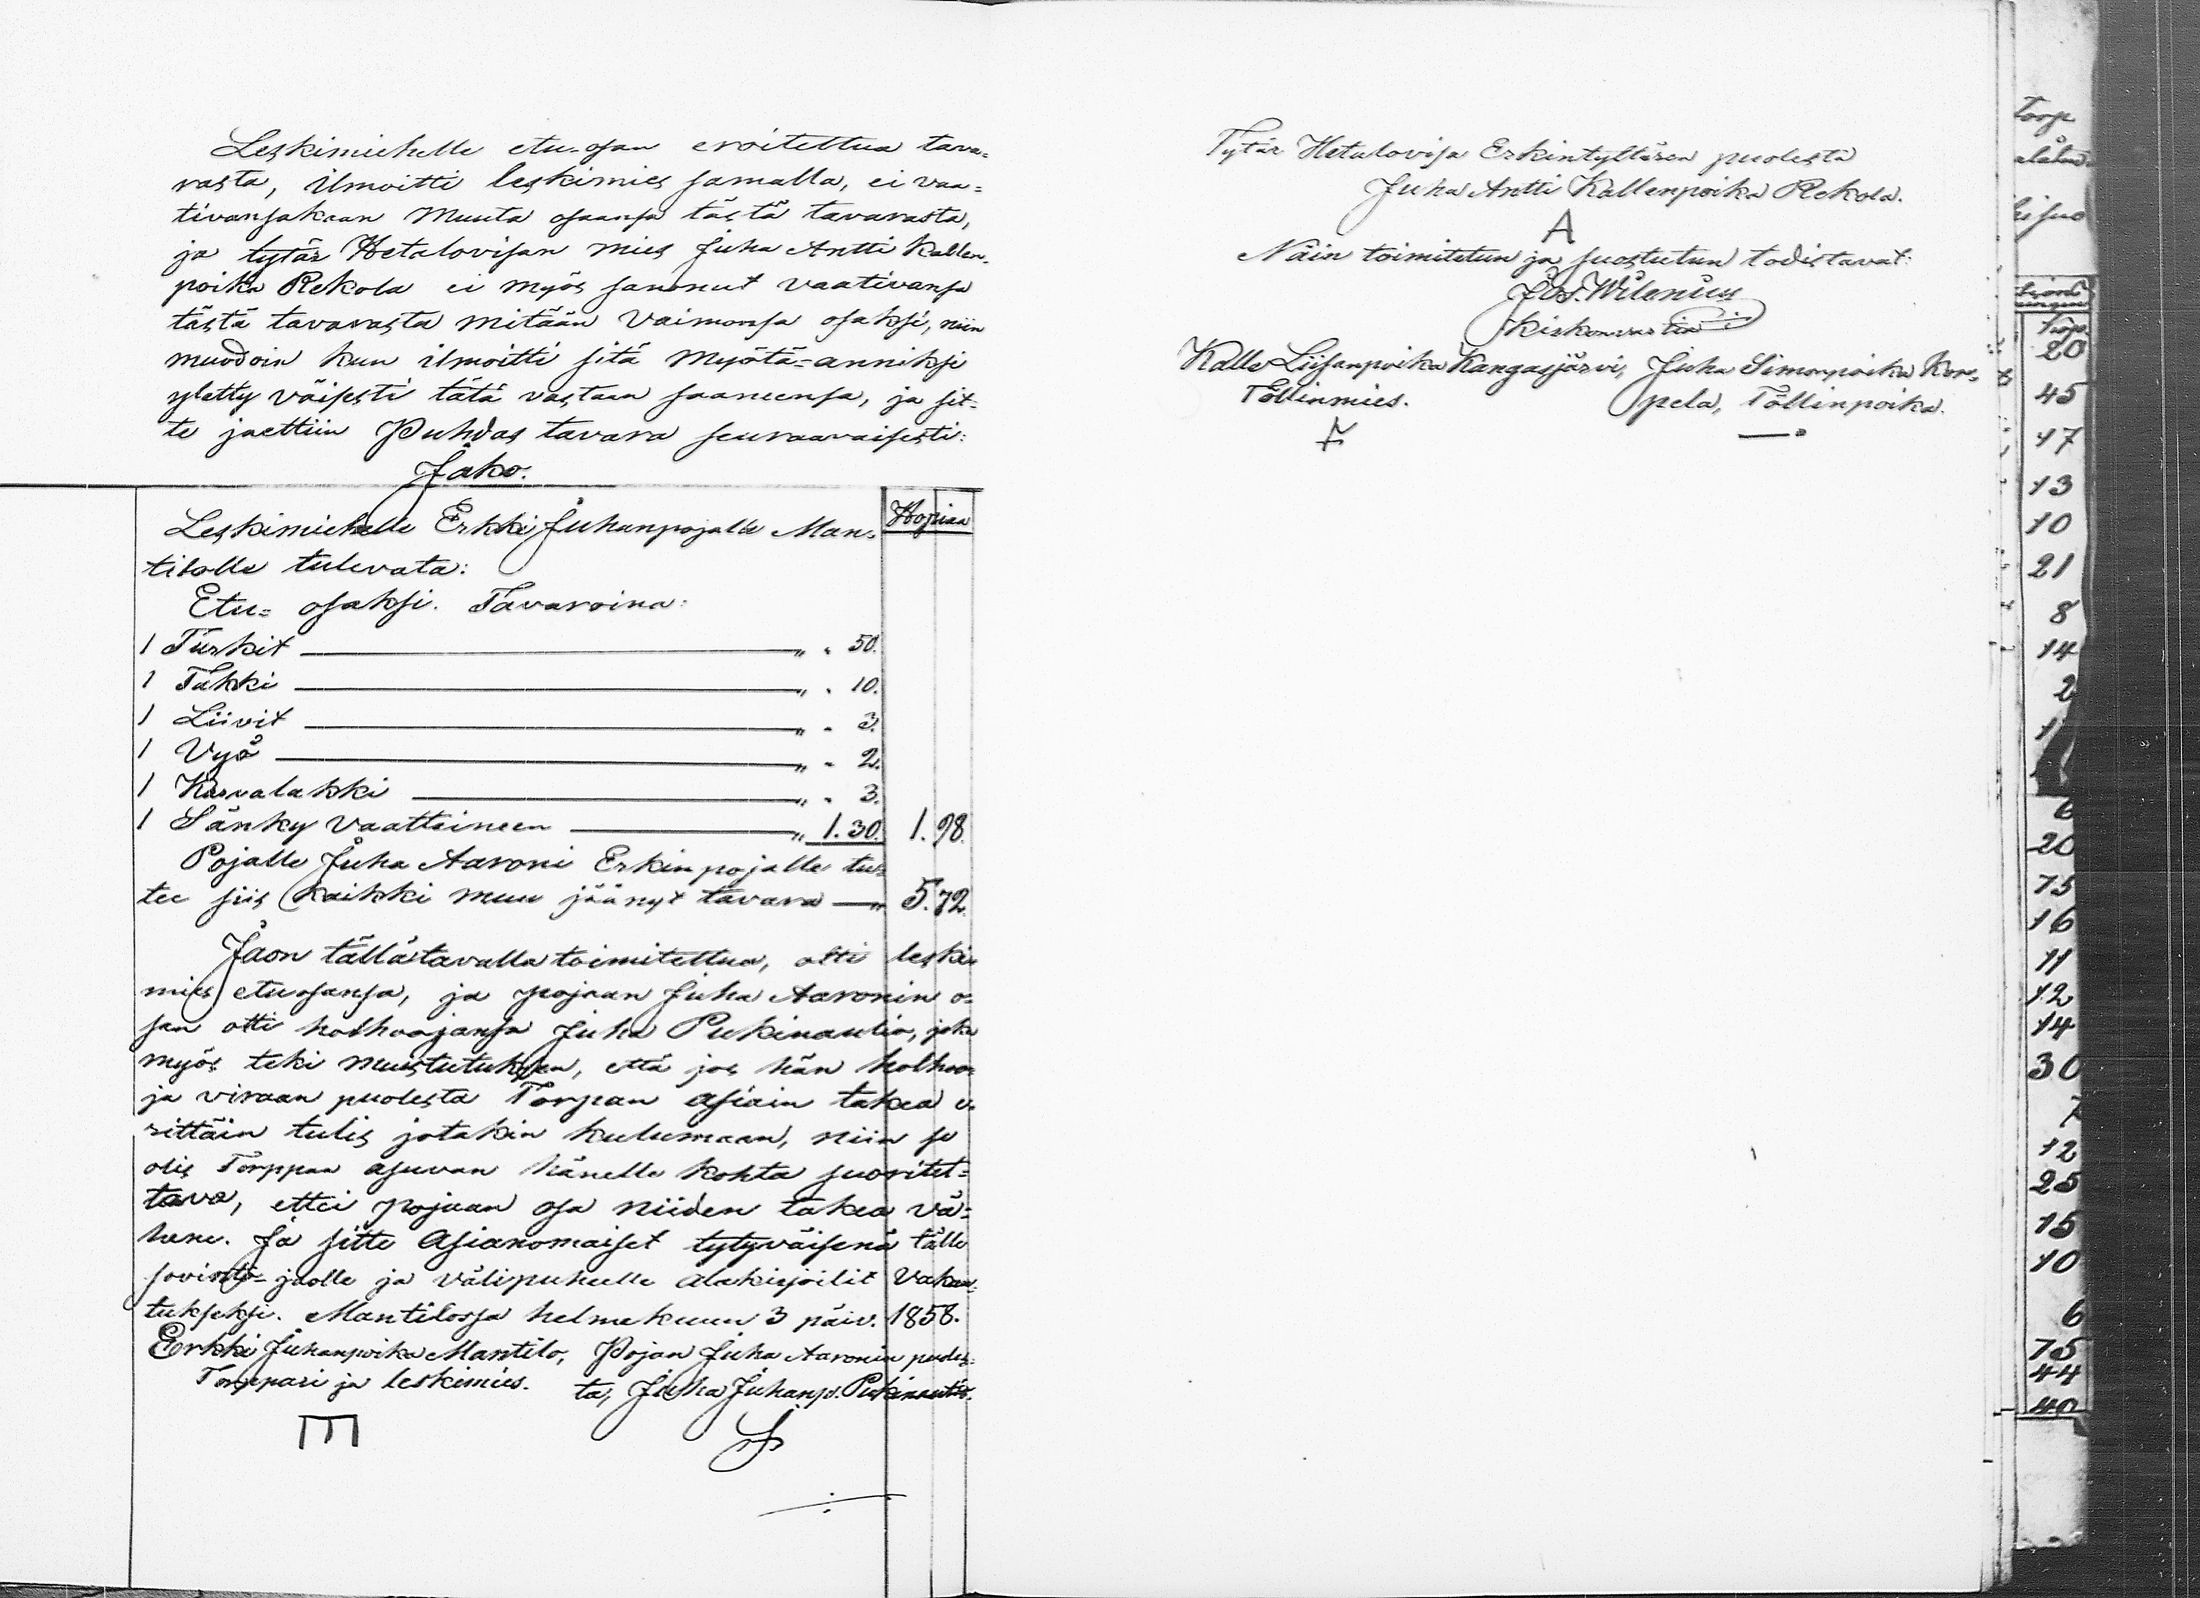 Leskimiehelle etu-osan eroitettua tava=
rasta, ilmoitti leskimies samalla, ei vaa=
tivansakaan muuta osaansa tästä tavarasta,
ja tytär Hetalovisan mies Juha Antti Kallen-
poika Rekola ei myös sanonut vaativansa
tästä tavarasta mitään vaimonsa osaksi, niin
muodoin kun ilmoitti sitä myötä=anniksi
yletty väisesti tätä vastaan saaneensa, ja sit=
te jaettiin Puhdas tavara seuraavaisesti:
Jako.
Hopiaa
Leskimiehelle Erkki Juhanpojalle Man=
tilolle tulevata:
Etu= osaksi. Tavaroina:
1 Turkit „ „ 50.
1 Takki „ „ 10.
1 Liivit „ „ 3.
1 Vyö „ „ 2.
1 Karvalakki „ „ 3.
1 Sänky vaatteineen „ 1.30. 1.98.
Pojalle Juha Aaroni Erkinpojalle tu=
lee siis kaikki muu jäänyt tavara „ 5.72.
Jaon tällätavalla toimitettua, otti leski=
mies etuosansa, ja pojaan Juha Aaronin o=
san otti holhoojansa Juha Pukinautio, joka
myös teki muistutuksen, että jos hän holhoo=
ja viraan puolesta Torpan asiain takea e=
rittäin tulis jotakin kulumaan, niin se
olis Torppaa asuvan hänelle kohta suoritet=
tava, ettei pojaan osa niiden takea vä=
hene. Ja sitte Asianomaiset tytyväisenä tälle
sovinto=jaolle ja välipuheelle alakirjoitit Vakuu=
tukseksi. Mantilossa helmekuun 3 päiv. 1858.
Erkki Juhanpoika Mantilo, Pojan Juha Aaronin puoles=
Torppari ja leskimies. ta, Juha Juhanp. Pukinautio.
Tytär Hetalovisa Erkintyttären puolesta
Juha Antti Kallenpoika Rekola.
A
Näin toimitetun ja suostutun todistavat:
Jos. Wilenius
Kirkonvartia
Kalle Liisanpoika Kangasjärvi, Juha Simonpoika Kor=
Tollinmies. pela, Tollinpoika.
Torp
20
45
17
13
10
21
8
14
2
6
20
75
16
11
12
14
30
7
12
25
15
10
6
75
44
40